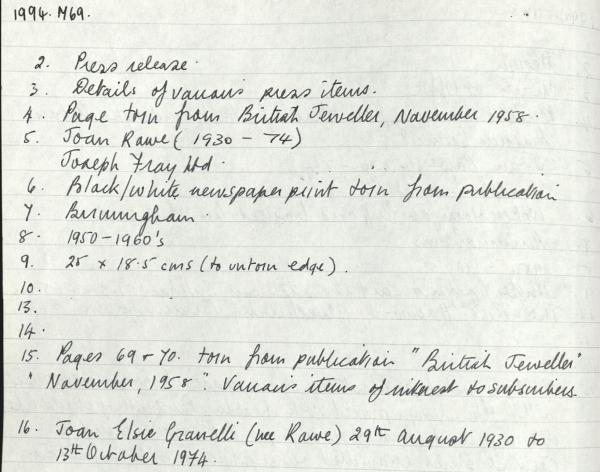 1994. M69.
2. Press release.
3. Details of various press items.
4. Page torn from British Jeweller, November 1958.
5. Joan Rawe (1930 - 74)
Joseph Fray Ltd.
6. Black/white newspaper print torn from publication
7. Birmingham.
8. 1950-1960's
9. 25 x 18.5 cms (to untorn edge).
10.
13.
14.
15. Pages 69 & 70. torn from publication "British Jeweller"
"November, 1958". Various items of interest to subscribers.
16. Joan Elsie Granelli (nee Rawe) 29th August 1930 to
13th October 1974.